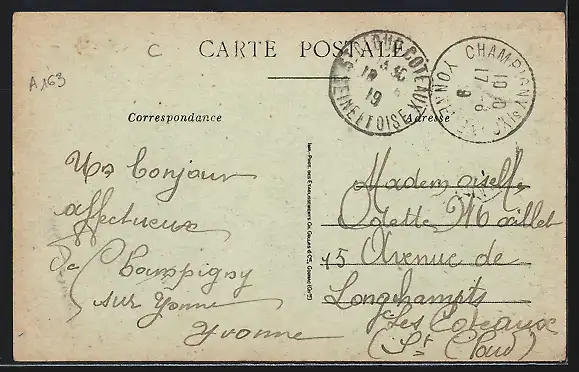 A163
C
CARTE POSTALE
ST CLOUD COTEAUX
18
19
SEINE ET OISE
CHAMPIGNY S YONNE
YONNE
10
17
Correspondance
Adresse
Un bonjour
affectueux
De Champigny
sur Yonne
Yvonne
Mademoiselle
Odette Maillet
15 Avenue de
Longchamps
Les Coteaux
(St Cloud)